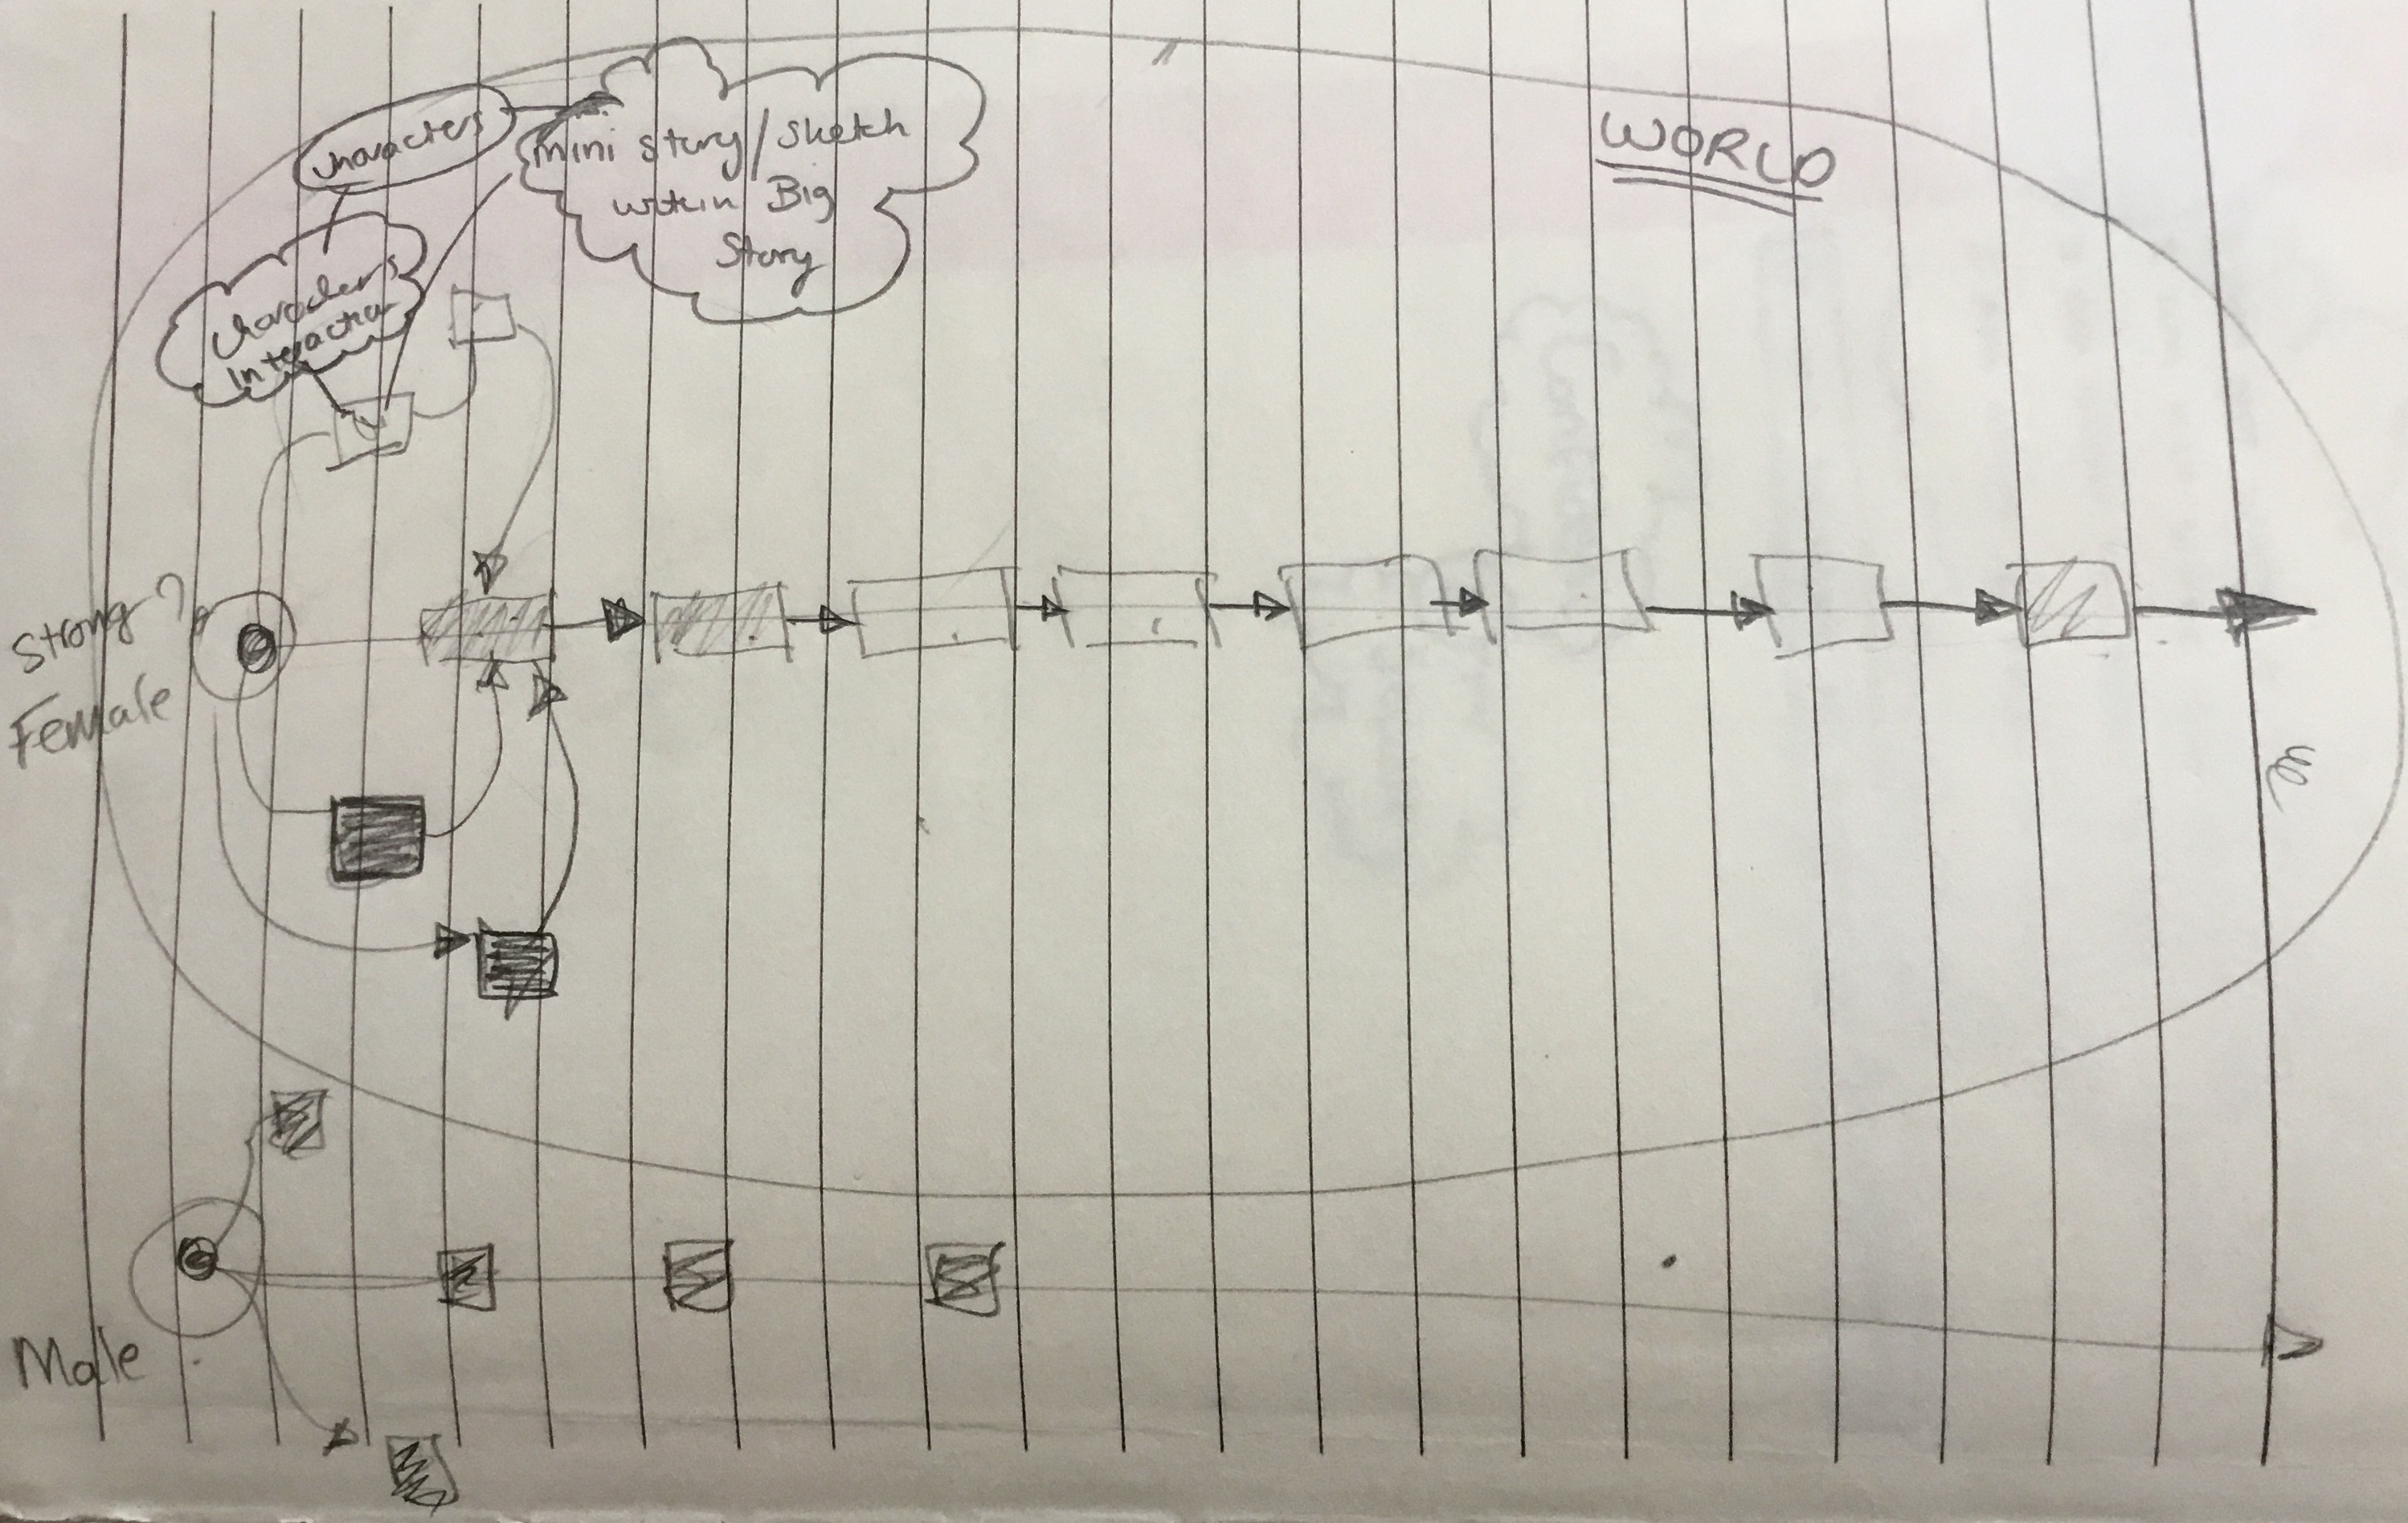 characters
mini story/sketch
within Big
Story
WORLD
characters
Interaction
Strong?
Female
Male